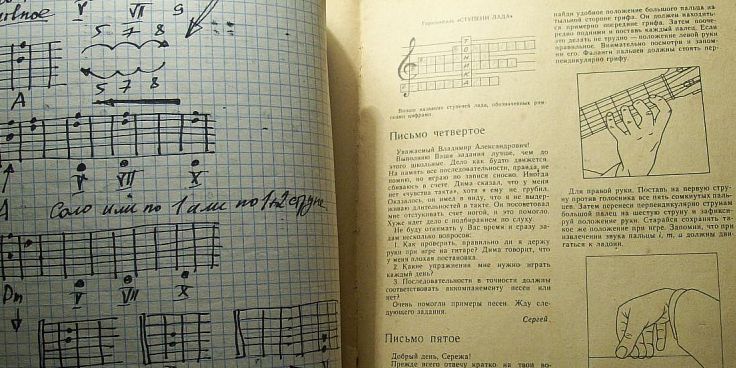 V VII 9
5 7 8
5 7 8
A
V VII X
A Соло или по 1 или по 1+2 струне
Dm V VII X
Гороломка «СТУПЕНИ ЛАДА»
ТОНИКА
сами цифрами.
Письмо четвертое
Уважаемый Владимир Александрович!
Выполнять Ваши задания лучше, чем до
этого школьные. Дело как будто движется.
На память все последовательности, правда, не
помню, но играю по записи сносно. Иногда
сбиваюсь в счете. Дима сказал, что у меня
нет «чувства такта», хотя я ему не грубил.
Оказалось, он имел в виду, что я не выдер-
живаю длительностей в такте. Он посоветовал
мне отстукивать счет ногой, и это помогло.
Хуже идет дело с подбиранием по слуху.
Не буду отнимать у Вас время и сразу за-
дам несколько вопросов:
1. Как проверить, правильно ли я держу
руки при игре на гитаре? Дима говорит, что
у меня плохая постановка.
2. Какие упражнения мне нужно играть
каждый день?
3. Последовательности в точности должны
соответствовать аккомпанементу песен или
нет?
Очень помогли примеры песен. Жду сле-
дующего задания.
Сергей
Письмо пятое
Добрый день, Сережа!
Прежде всего отвечу кратко на твои во-
найти удобное положение большого пальца на
тыльной стороне грифа. Он должен находить-
ся примерно посредине грифа. Затем пооче-
редно подними и поставь каждый палец. Если
это делать не трудно — положение левой руки
правильное. Внимательно посмотри и запом-
ни его. Фаланги пальцев должны стоять пер-
пендикулярно грифу.
Для правой руки. Поставь на первую стру-
ну против голосника все пять сомкнутых паль-
цев. Затем перенеси перпендикулярно струнам
большой палец на шестую струну и зафикси-
руй положение руки. Старайся сохранить та-
кое же положение при игре. Запомни, что при
извлечении звука пальцы i, m, a должны дви-
гаться к ладони.